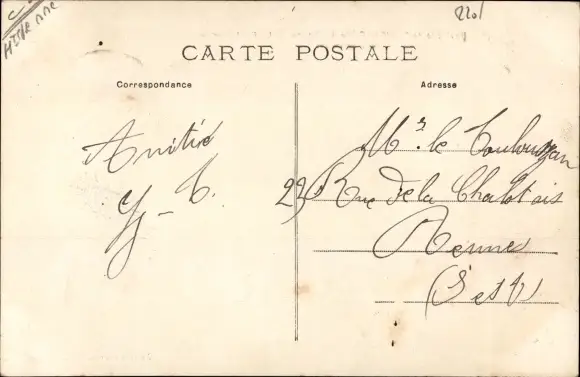 2201
CARTE POSTALE
Correspondance
Adresse
Amitié
Y-T.
Mr. le Toulouzan
22 Rue de la Chalotais
Rennes
(I et V)